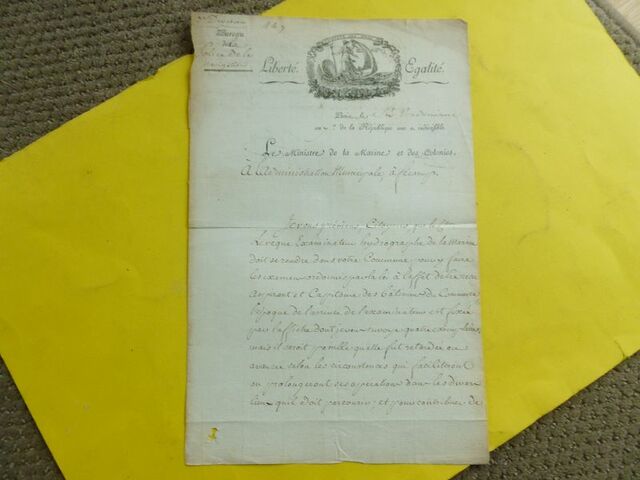 Division
Bureau
de la
Police de la
Navigation
Liberté. Egalité.
Paris, le Vendemiaire
an de la République une et indivisible.
Le Ministre de la Marine et des Colonies.
A L'Administration Municipale, à fécamp.
Je vous préviens Citoyens que le Cen
Leveque Examinateur hydrographe de la Marine
doit se rendre dans votre Commune pour y faire
les examens ordonnés par la loi à l'effet de
aspirant et Capitaine des bâtimens du Commerce
l'époque de l'arrivée de l'examinateur est fixée
par l'affiche dont je vous envoye quatre exemplaires,
mais il seroit possible qu'elle fut retardée ou
avancée selon les circonstances qui faciliteront
ou prolongeront ses operations dans les divers
lieux qu'il doit parcourir, et pour contribuer de